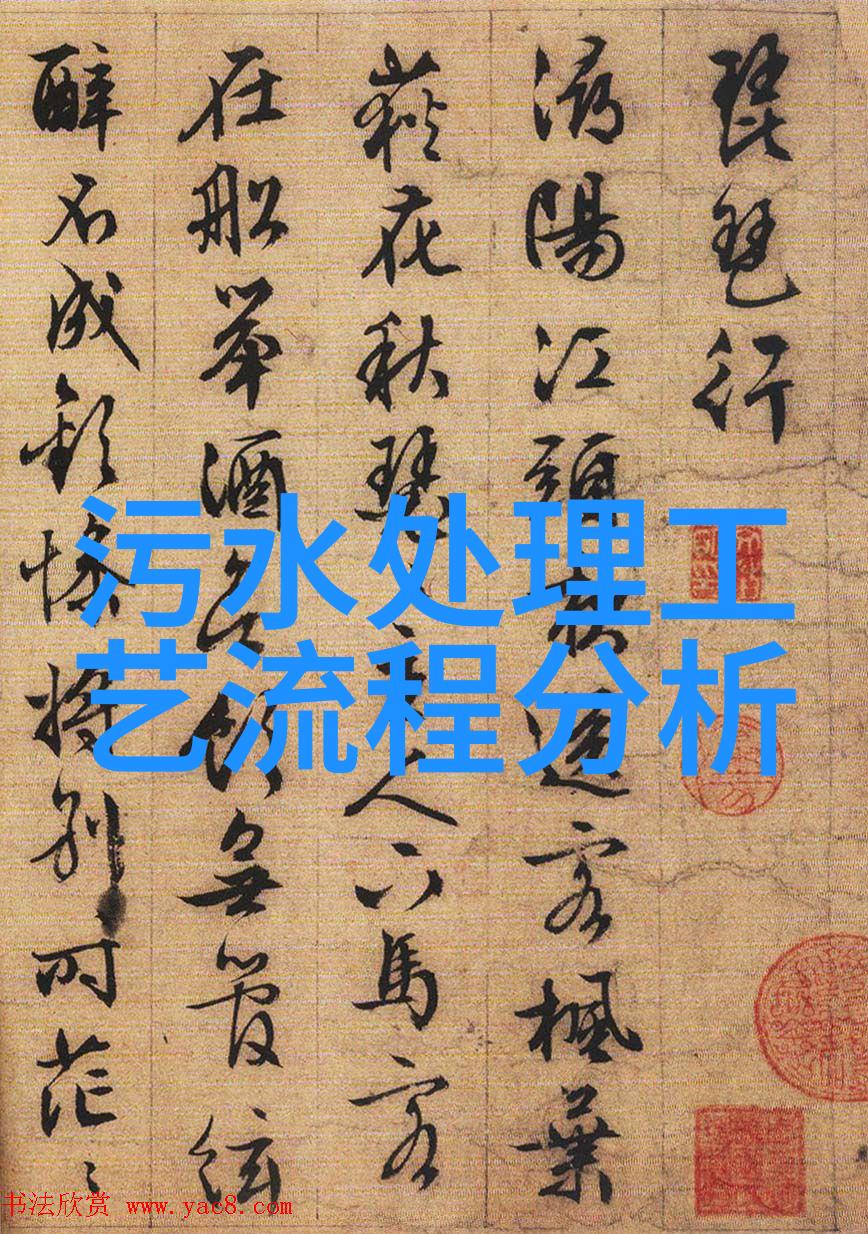 琵琶行
潯陽江頭夜送客楓葉
荻花秋瑟々主人下馬客
在船舉酒欲飲無管絃
醉不成歡慘將別時茫々
污水处理工
艺流程分析
书法欣赏 www.yac8.com